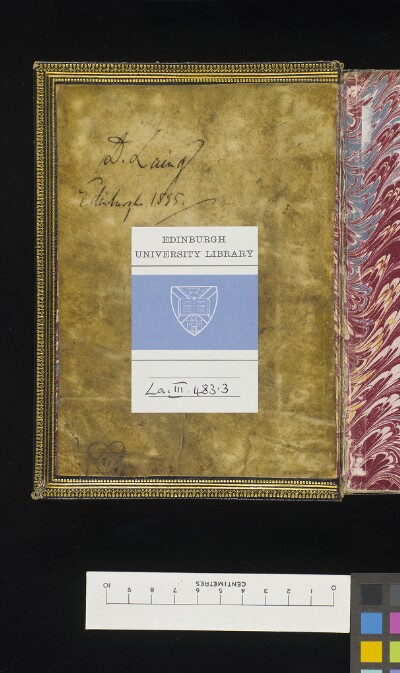 D. Laing
Edinburgh 1835.
EDINBURGH
UNIVERSITY LIBRARY
La. III. 483.3
CENTIMETRES
10 9 8 7 6 5 4 3 2 1 0